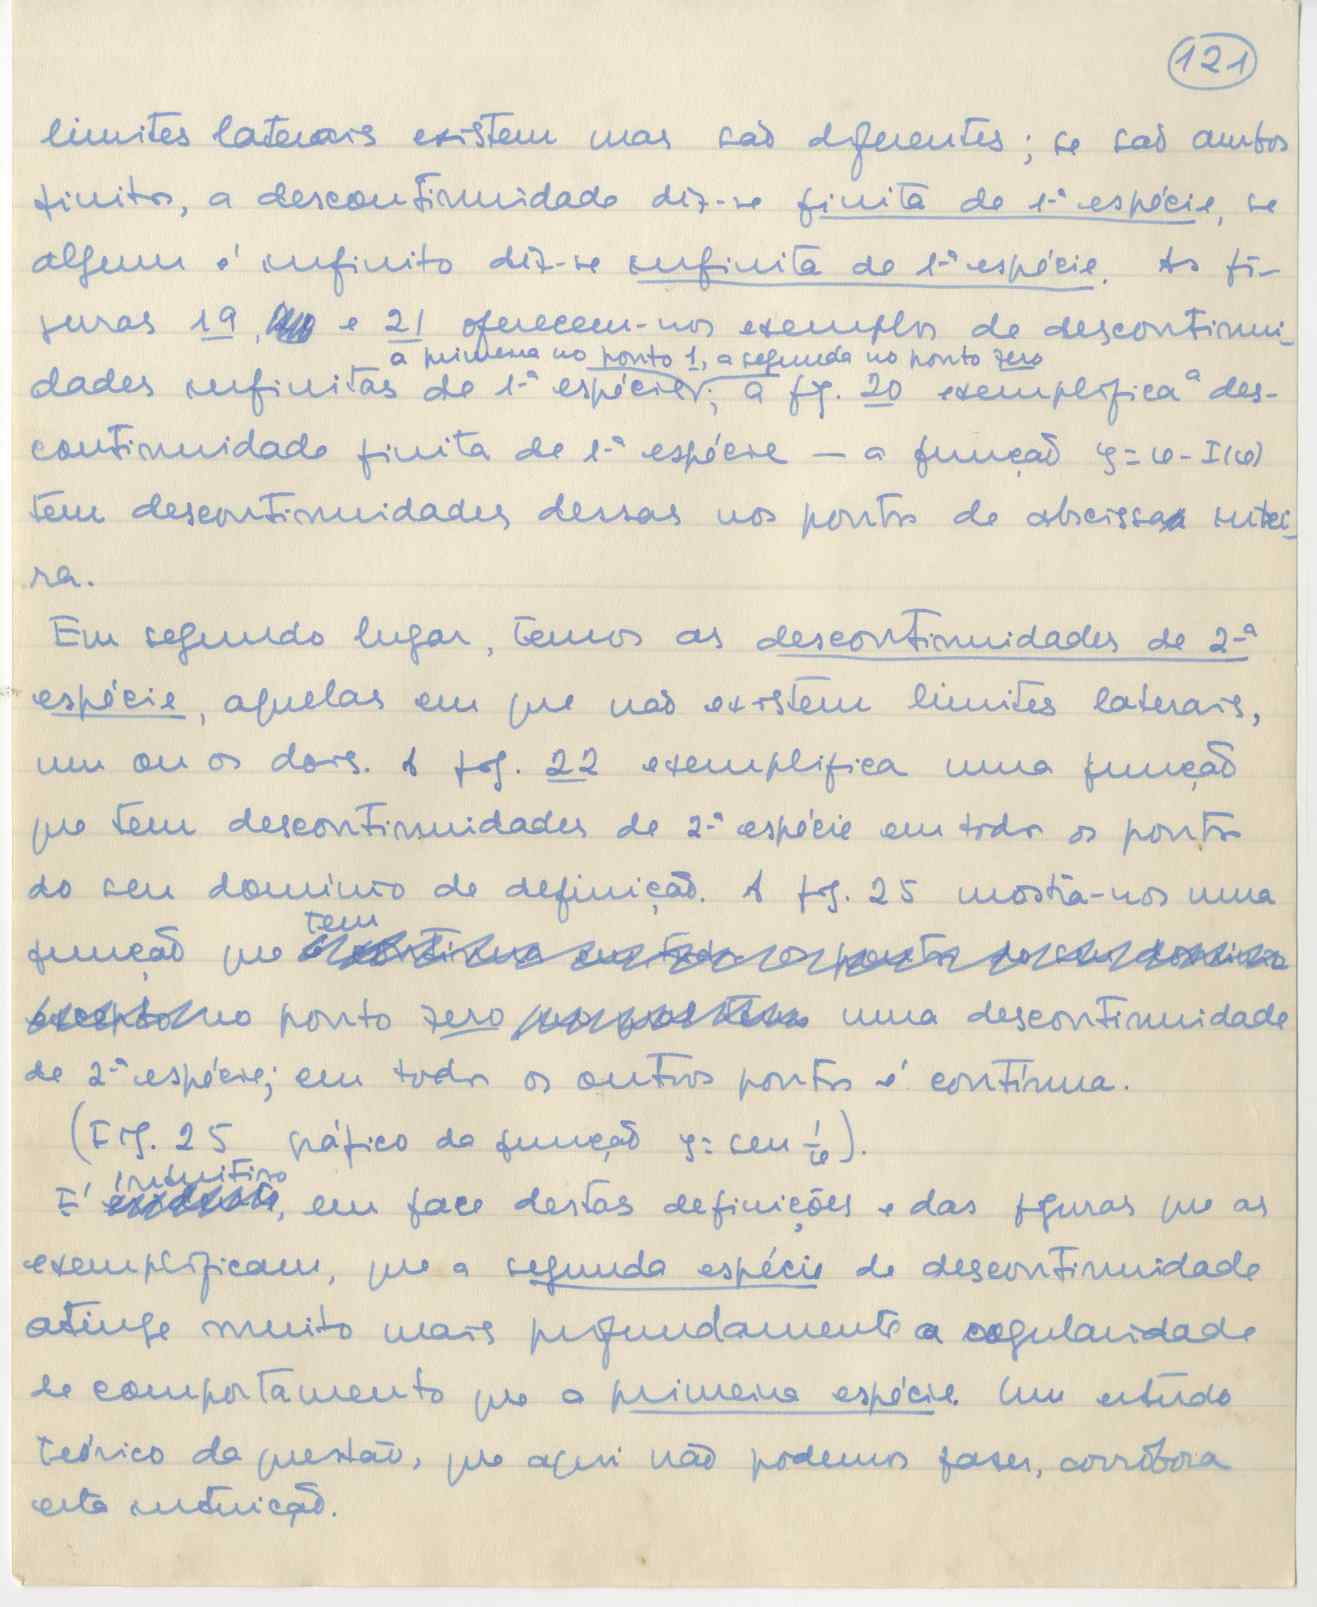 121
limites laterais existem mas são diferentes; se são ambos
finitos, a descontinuidade diz-se finita de 1-ª espécie, se
algum é infinito diz-se infinita de 1-ª espécie. As fi-
guras 19, e 21 oferecem-nos exemplos de descontinui-
a primeira no ponto 1, a segunda no ponto zero
dades infinitas de 1-ª espécie; a fig. 20 exemplifica a des-
continuidade finita de 1-ª espécie — a função y=x-I(x)
tem descontinuidades dessas nos pontos de abscissa intei-
ra.
Em segundo lugar, temos as descontinuidades de 2-ª
espécie, aquelas em que não existem limites laterais,
um ou os dois. A fig. 22 exemplifica uma função
que tem descontinuidades de 2-ª espécie em todos os pontos
do seu domínio de definição. A fig. 25 mostra-nos uma
tem
função que é contínua em todos os pontos do seu domínio
excepto no ponto zero uma descontinuidade
de 2-ª espécie; em todos os outros pontos é contínua.
(Fig. 25 gráfico da função y= sen 1/x).
intuitivo
É evidente, em face destas definições e das figuras que as
exemplificam, que a segunda espécie de descontinuidade
atinge muito mais profundamente a regularidade
de comportamento que a primeira espécie. Um estudo
teórico da questão, que aqui não podemos fazer, corrobora
esta intuição.